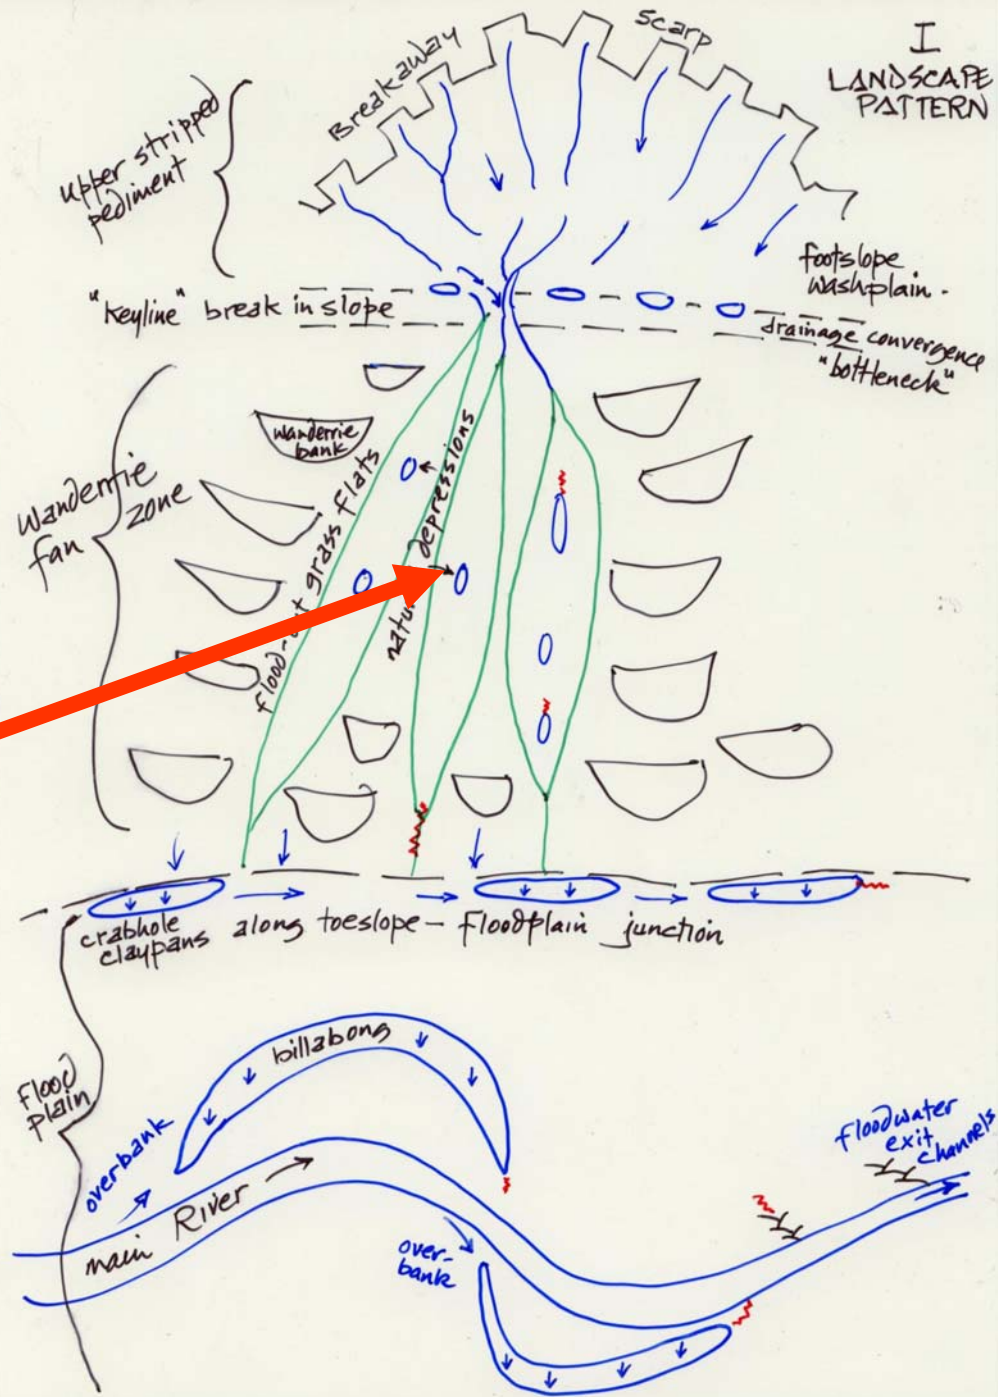 I
LANDSCAPE
PATTERN
Breakaway
Scarp
upper stripped
pediment
footslope
washplain.
"Keyline" break in slope
drainage convergence
"bottleneck"
wanderrie
bank
Wanderrie
fan zone
flood-out grass flats
natural depressions
crabhole
claypans along toeslope - floodplain junction
billabong
flood
plain
overbank
main River
over-
bank
floodwater
exit
channels